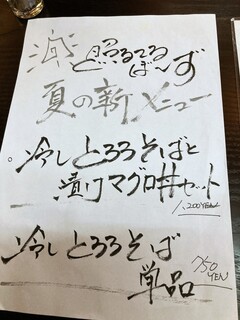 と照るてる
ぼ〜ず
夏の新メニュー
冷しとろろそばと
漬けマグロ丼セット
1,200YEN
冷しとろろそば
単品
750
YEN